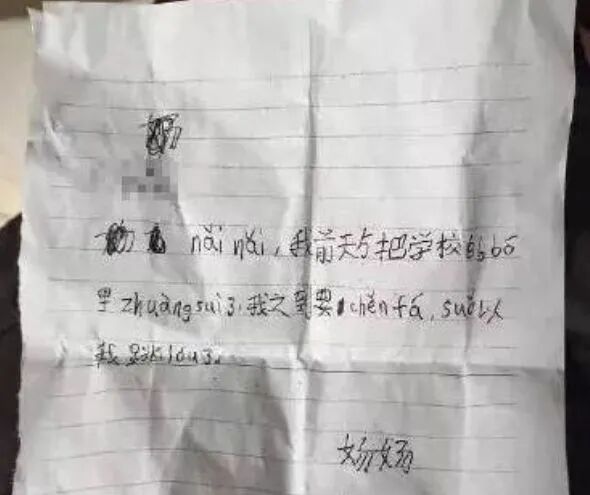 nǎi nǎi,我前天把学校的bō
里zhuàng suì了,我之到要chěn fá,suǒ以
我跳lóu了.